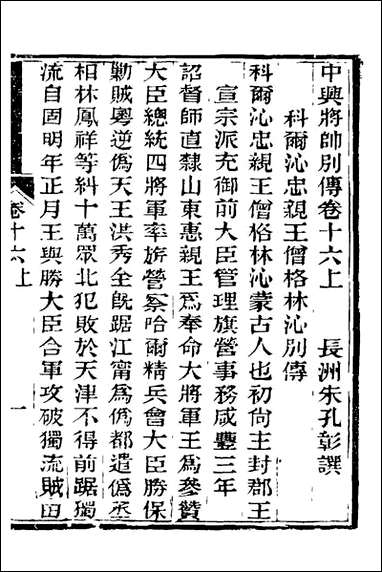 中興將帥別傳卷十六上　長洲朱孔彰譔
科爾沁忠親王僧格林沁別傳
科爾沁忠親王僧格林沁蒙古人也初尙主封郡王
宣宗派充御前大臣管理旗營事務咸豐三年
詔督師直隸山東惠親王爲奉命大將軍王爲參贊
大臣總統四將軍率旂營察哈爾精兵會大臣勝保
勦賊粵逆僞天王洪秀全旣踞江甯爲僞都遣僞丞
相林鳳祥等糾十萬眾北犯敗於天津不得前踞獨
流自固明年正月王與勝大臣合軍攻破獨流賊田
卷十六上
一